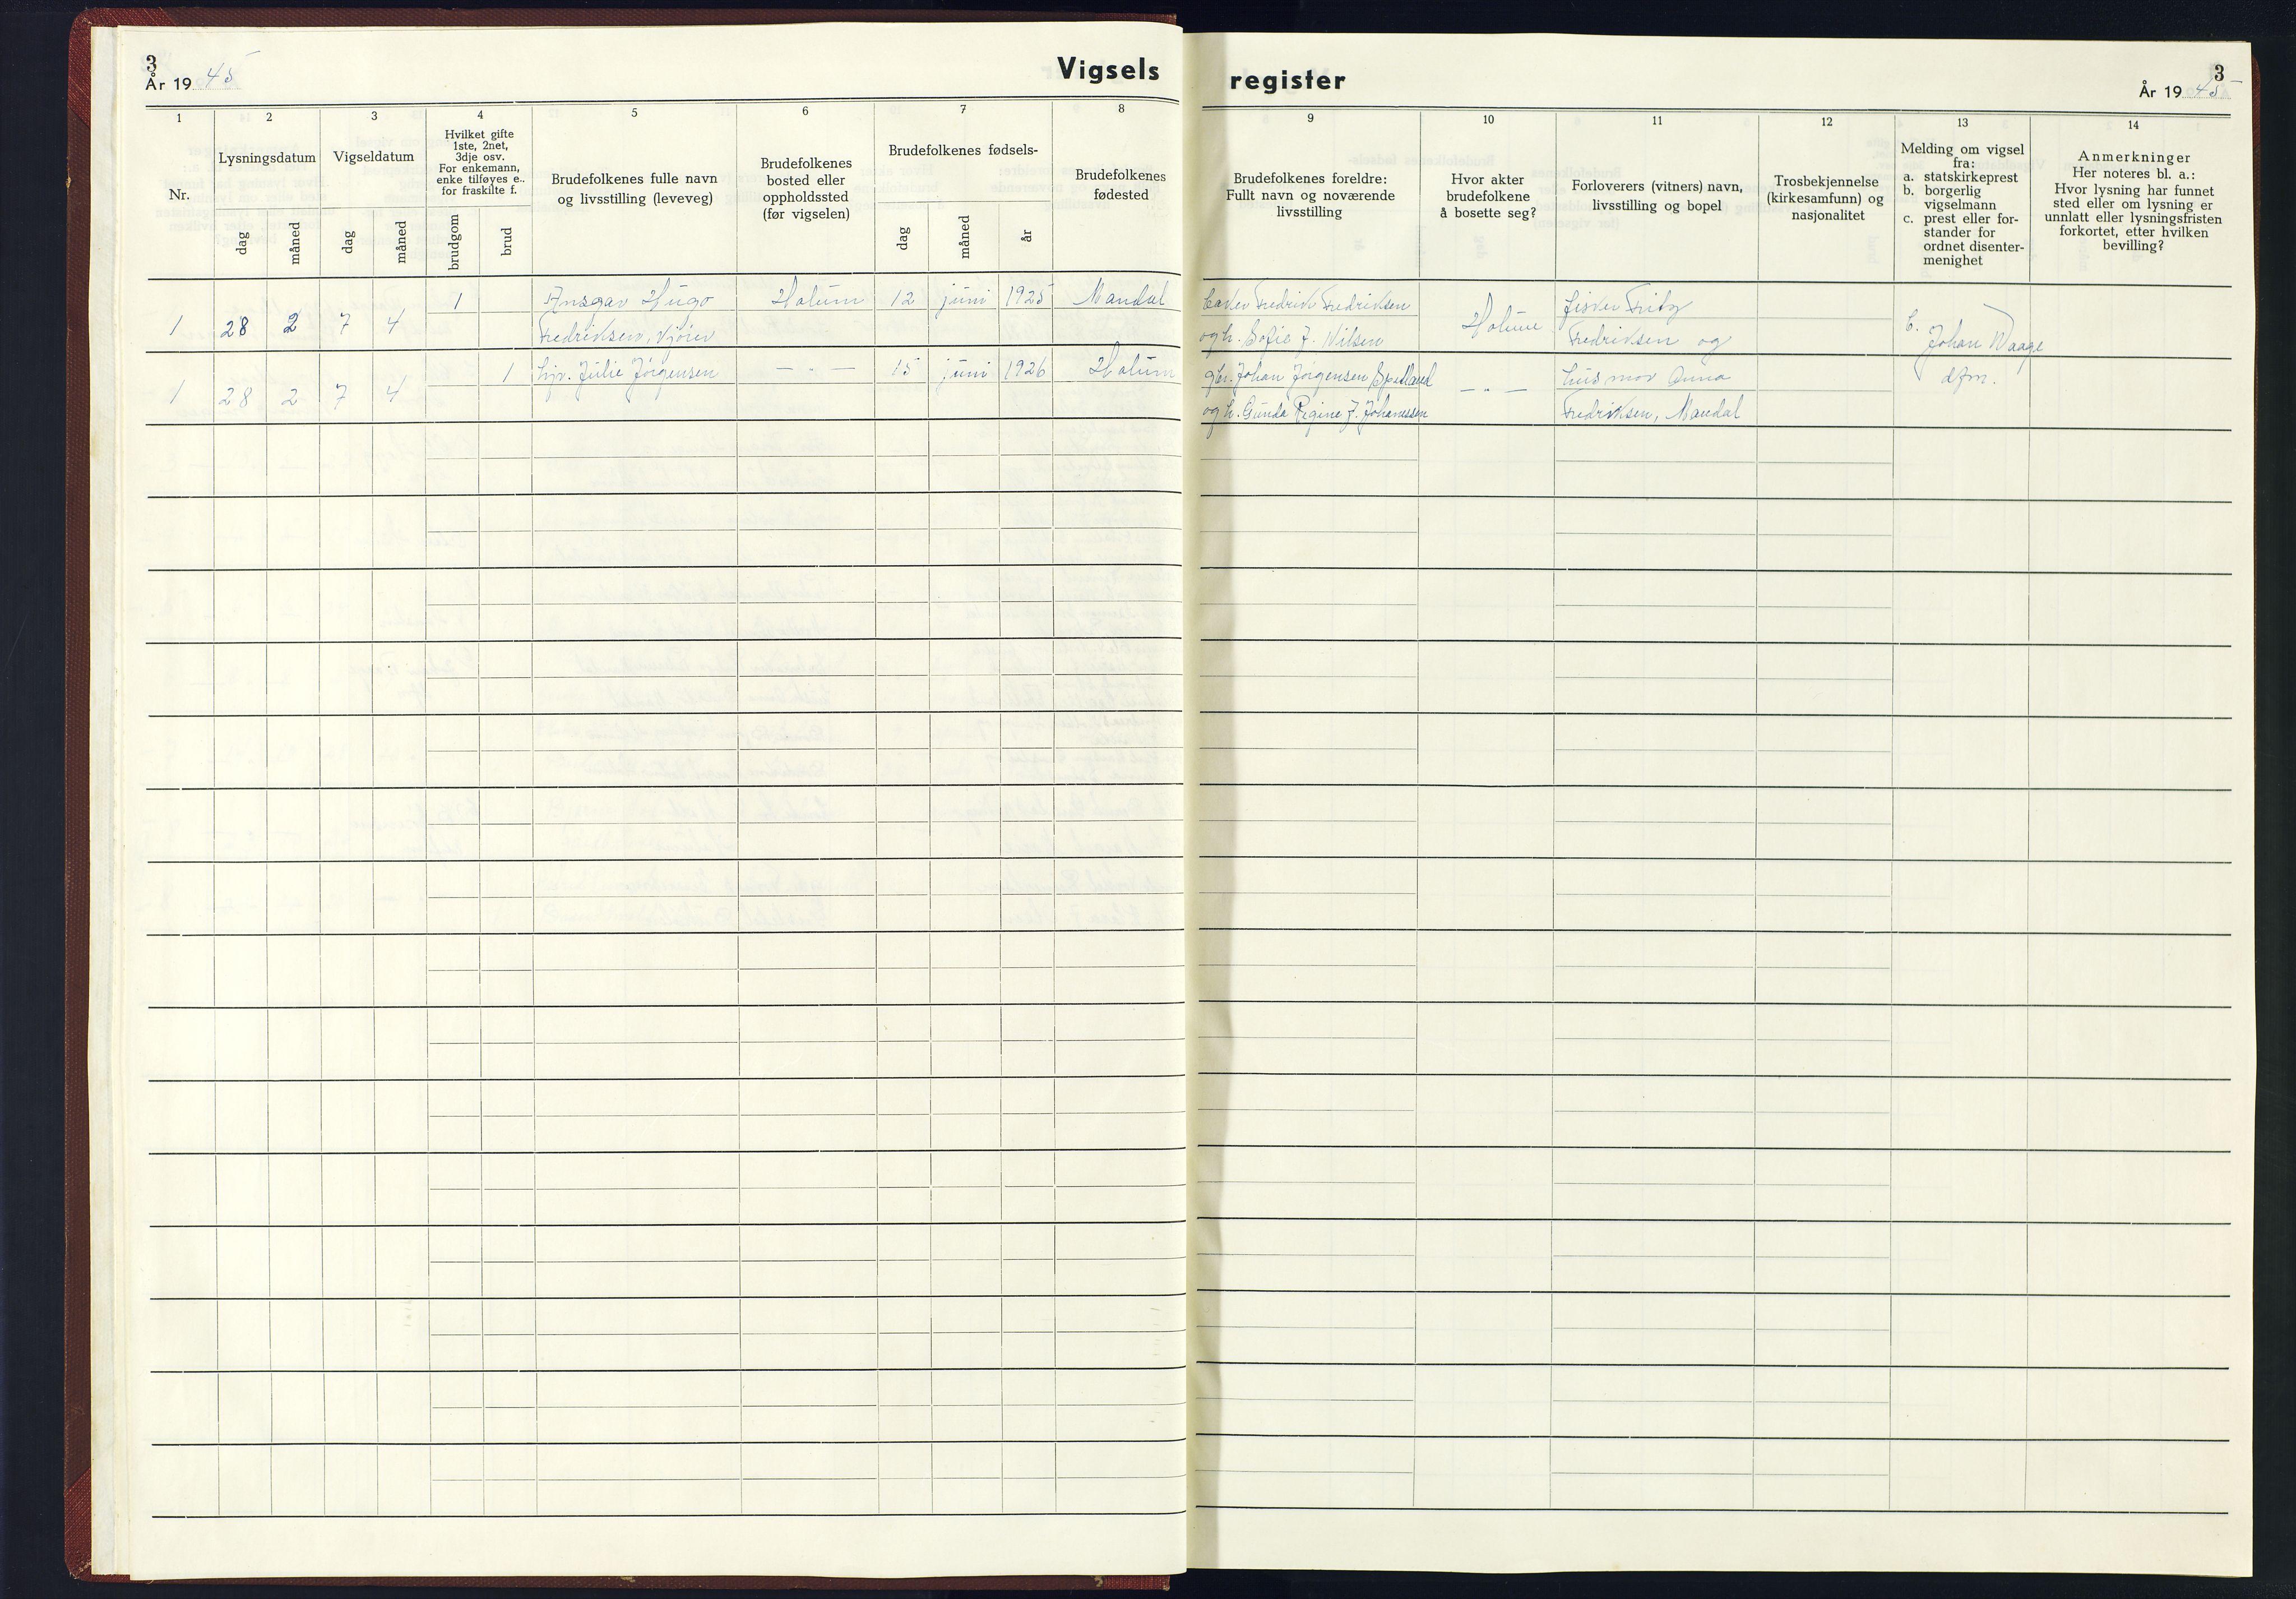 3
År 19 45
Vigsels
register
3
År 19 45
1
2
3
4
5
6
7
8
9
10
11
12
13
14
Nr.
Lysningsdatum
dag
måned
Vigseldatum
dag
måned
Hvilket gifte
1ste, 2net,
3dje osv.
For enkemann,
enke tilføyes e..
for fraskilte f.
brudgom
brud
Brudefolkenes fulle navn
og livsstilling (leveveg)
Brudefolkenes
bosted eller
oppholdssted
(før vigselen)
Brudefolkenes fødsels-
dag
måned
år
Brudefolkenes
fødested
Brudefolkenes foreldre:
Fullt navn og noværende
livsstilling
Hvor akter
brudefolkene
å bosette seg?
Forloverers (vitners) navn,
livsstilling og bopel
Trosbekjennelse
(kirkesamfunn) og
nasjonalitet
Melding om vigsel
fra:
a. statskirkeprest
b. borgerlig
vigselmann
c. prest eller for-
stander for
ordnet disenter-
menighet
Anmerkninger
Her noteres bl. a.:
Hvor lysning har funnet
sted eller om lysning er
unnlatt eller lysningsfristen
forkortet, etter hvilken
bevilling?
1 28 2 7 4 1
Ansgar Hugo
Fredriksen, kjører
Holum 12 juni 1925 Mandal
Fredrik Fredriksen
og h. Sofie f. Nilsen
Holum
fisker Fritz
Fredriksen og
C. Johan Waage
dfm.
1 28 2 7 4 1
hjv. Julie Jørgensen
— " — 15 juni 1926 Holum
gbr. Johan Jørgensen
og h. Gunda Regine f. Johanessen
— " —
husmor Anna
Fredriksen, Mandal